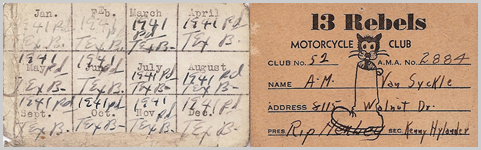 Jan. Feb. March April
1941 Pd 1941 Pd 1941 Pd 1941 Pd
Tex B- Tex B- Tex B- Tex B-
May June July August
1941 Pd 1941 Pd 1941 Pd 1941 Pd
Tex B- Tex B- Tex B- Tex B-
1941 Pd 1941 Pd 1941 Pd 1941 Pd
Sept. Oct. Nov. Dec.
Tex B- Tex B- Tex B- Tex B-
13 Rebels
MOTORCYCLE CLUB
CLUB No. 52 A.M.A. No. 2884
NAME A.M. Van Syckle
ADDRESS 8115 Walnut Dr.
PRES Rip SEC. Kenny Hylander